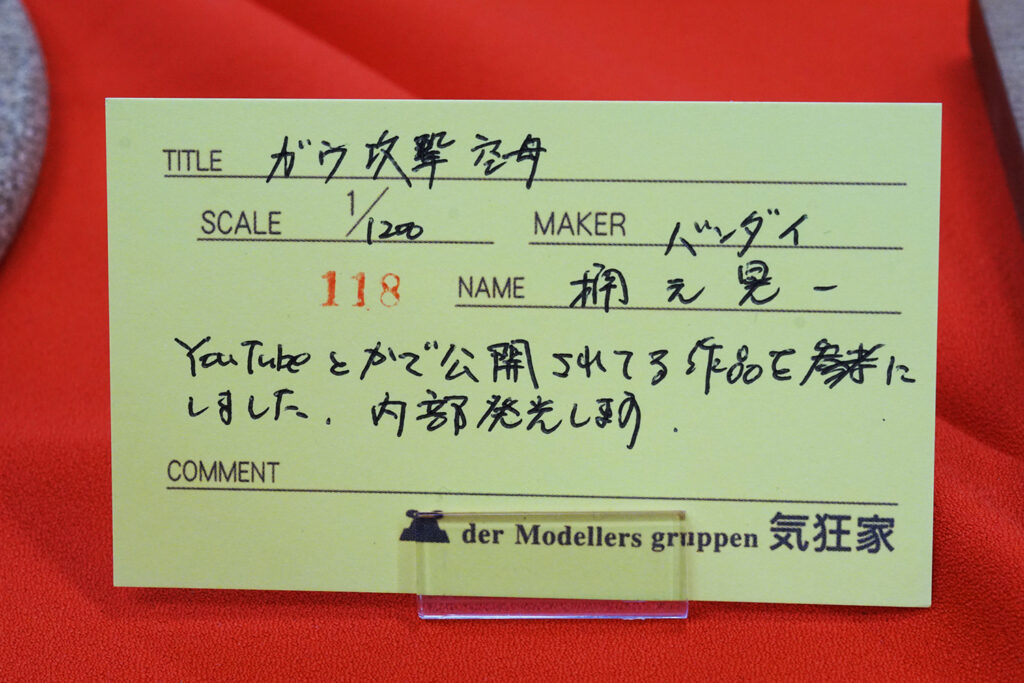 TITLE ガウ攻撃空母
SCALE 1/1200 MAKER バンダイ
118 NAME 桐元晃一
YouTubeとかで公開されてる作品を参考に
しました. 内部発光します.
COMMENT
der Modellers gruppen 気狂家